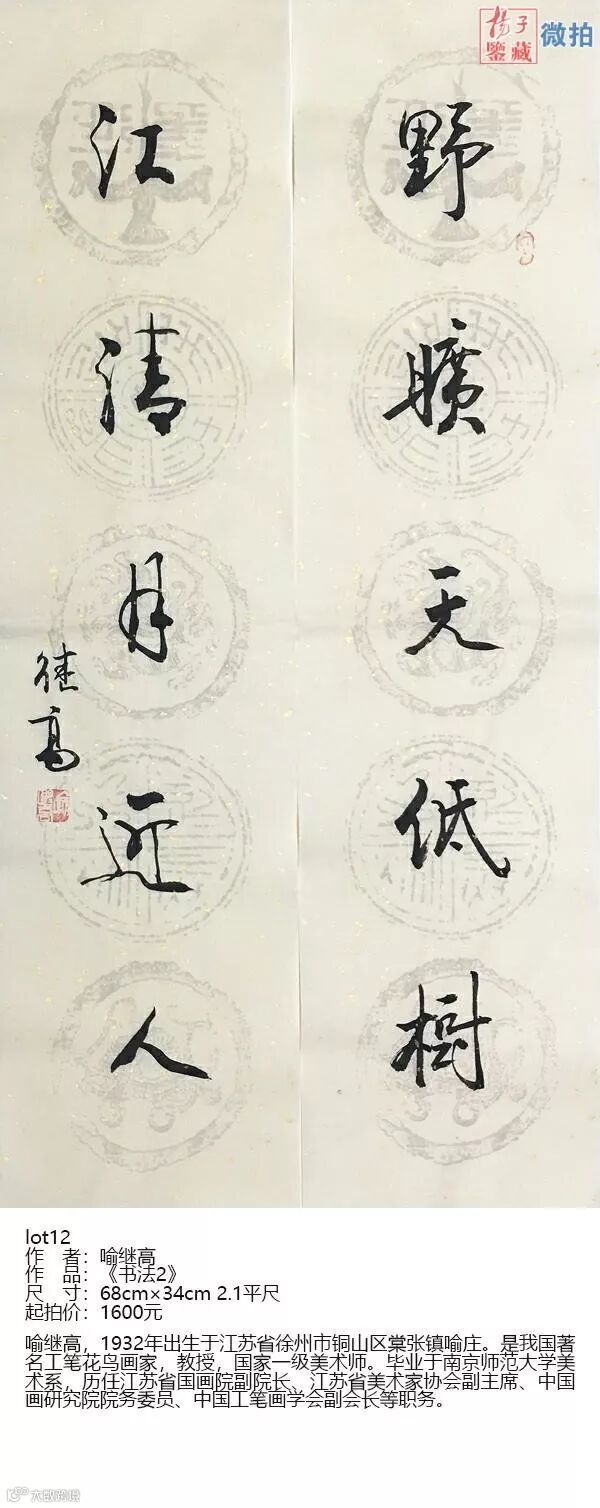 楊子
鑒藏
微拍
野曠天低樹
江清月近人
继高
lot12
作 者：喻继高
作 品：《书法2》
尺 寸：68cm×34cm 2.1平尺
起拍价：1600元
喻继高，1932年出生于江苏省徐州市铜山区棠张镇喻庄。是我国著
名工笔花鸟画家，教授，国家一级美术师。毕业于南京师范大学美
术系，历任江苏省国画院副院长、江苏省美术家协会副主席、中国
画研究院院务委员、中国工笔画学会副会长等职务。
大敏跨境